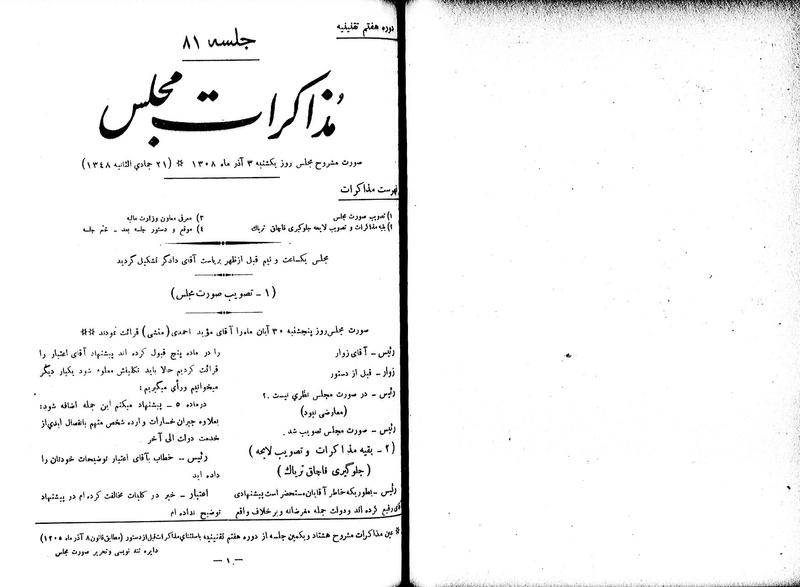 دوره هفتم تقنینیه
جلسه ۸۱
مذاکرات مجلس
صورت مشروح مجلس روز یکشنبه ۳ آذر ماه ۱۳۰۸ * (۲۱ جمادی الثانیه ۱۳٤۸)
فهرست مذاکرات
۱) تصویب صورت مجلس
۲) بقیه مذاکرات و تصویب لایحه جلوگیری قاچاق تریاك
۳) معرفی معاون وزارت مالیه
٤) موقع و دستور جلسه بعد - ختم جلسه
مجلس یکساعت و نیم قبل از ظهر بریاست آقای دادگر تشکیل گردید
(۱ - تصویب صورت مجلس)
صورت مجلس روز پنجشنبه ۳۰ آبان ماه را آقای مؤید احمدی (منشی) قرائت نمودند **
رئیس - آقای زوار
زوار - قبل از دستور
رئیس - در صورت مجلس نظری نیست ؟
(معارضی نبود)
رئیس - صورت مجلس تصویب شد .
(۲ - بقیه مذاکرات و تصویب لایحه)
(جلوگیری قاچاق تریاك)
رئیس - بطوریکه خاطر آقایان مستحضر است پیشنهادی
آقای رفیع کرده اند و دولت جمله مغرضانه و بر خلاف واقع
را در ماده پنج قبول کرده اند پیشنهاد آقای اعتبار را
قرائت کردیم حالا باید تکلیفش معلوم شود یکبار دیگر
میخوانیم و رأی میگیریم :
در ماده ٥ - پیشنهاد میکنم این جمله اضافه شود:
بعلاوه جبران خسارات وارده شخص متهم بانفصال ابدی از
خدمت دولت الی آخر
رئیس - خطاب بآقای اعتبار توضیحات خودتان را
داده اید
اعتبار - خیر در کلیات مخالفت کرده ام در پیشنهاد
توضیح نداده ام
* عین مذاکرات مشروح هشتاد و یکمین جلسه از دوره هفتم تقنینیه باستثنای مذاکرات قبل از دستور (مطابق قانون ۸ آذر ماه ۱۳۰۵)
دایره تند نویسی و تحریر صورت مجلس
— ۱ —